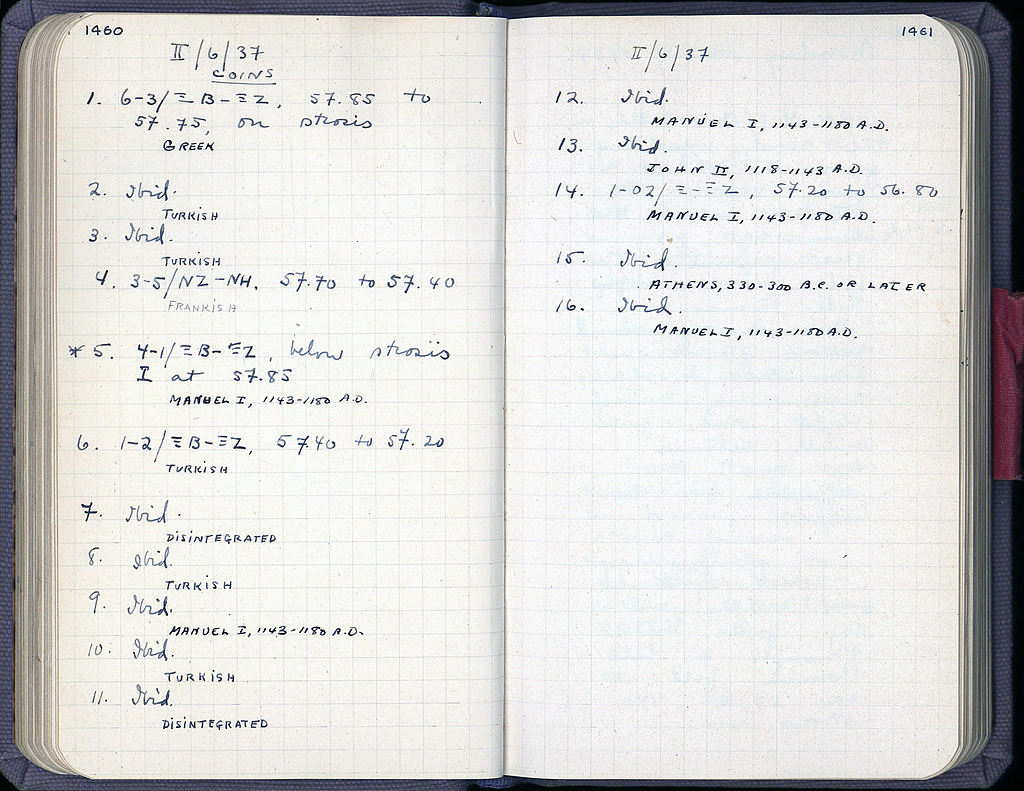 1460
II/6/37
COINS
1. 6-3/ΞB-ΞZ, 57.85 to
57.75, on strosis
GREEK
2. Ibid.
TURKISH
3. Ibid.
TURKISH
4. 3-5/NZ-NH. 57.70 to 57.40
FRANKISH
* 5. 4-1/ΞB-ΞZ, below strosis
I at 57.85
MANUEL I, 1143-1180 A.D.
6. 1-2/ΞB-ΞZ, 57.40 to 57.20
TURKISH
7. Ibid.
DISINTEGRATED
8. Ibid.
TURKISH
9. Ibid.
MANUEL I, 1143-1180 A.D.
10. Ibid.
TURKISH
11. Ibid.
DISINTEGRATED
1461
II/6/37
12. Ibid.
MANUEL I, 1143-1180 A.D.
13. Ibid.
JOHN II, 1118-1143 A.D.
14. 1-02/Ξ-ΞZ, 57.20 to 56.80
MANUEL I, 1143-1180 A.D.
15. Ibid.
ATHENS, 330-300 B.C. OR LATER
16. Ibid.
MANUEL I, 1143-1180 A.D.